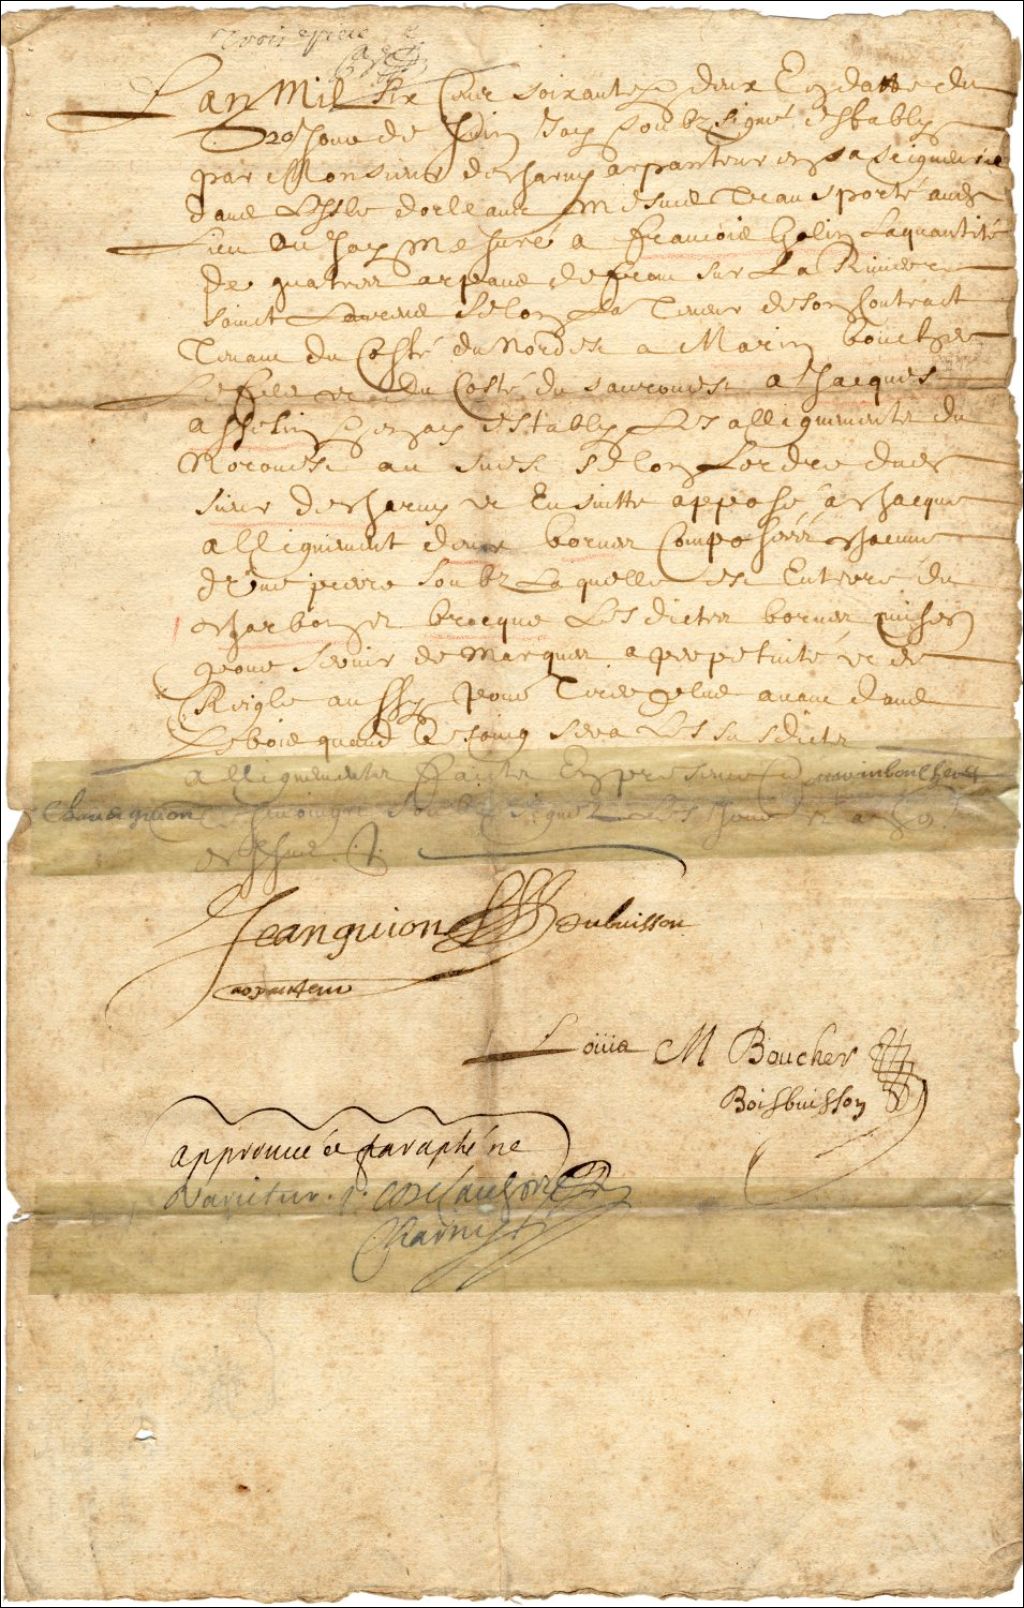 Troisieme
L'an Mil six Cens soixante & deux En datte du
20e Jour de Juin Jay soubz signé Estably
par Monsieur de Charny arpanteur en sa seigneurie
dans L'Isle dorleans me suis transporté audit
Lieu ou Jay mesuré a francois Golin Laquantité
de quattre arpans de fron sur La Riviere
sainct Laurens selon La Teneur de son Contract
Tenant du Costé du Nordest a Marin bouchер
Le fils et du Costé du surrouest a Jacques
asselin & en ay Estably Les allignements du
Norouest au suest selon L'ordre dudit
sieur de Charny et Ensuitte apposé a Chacque
allignement deux bornes Composéez Chacune
d'une pierre soubz Laquelle est Enterré du
Charbon et brocque Lesdictes bornes mises
pour servir de Marques a perpetuité et de
Reigle aussy pour Tirer plus avant dans
Le bois quand besoing sera Lesdictes
allignements faictes En presence de marin boucher et
Louis guion Temoings soubz signez Les Jour et an
Jeanguion dubuisson
arpanteur
Loüis M Boucher
Boisbuisson
approuué et paraphé ne
Varietur. C. De Lauson
Charny